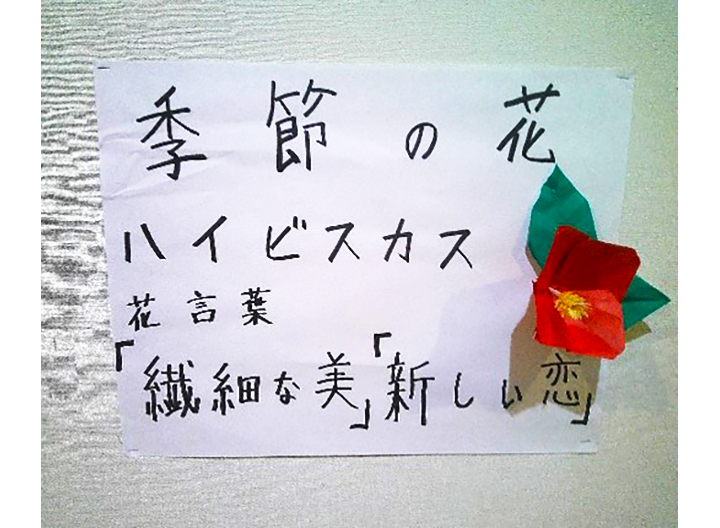 季節の花
ハイビスカス
花言葉
「繊細な美」「新しい恋」